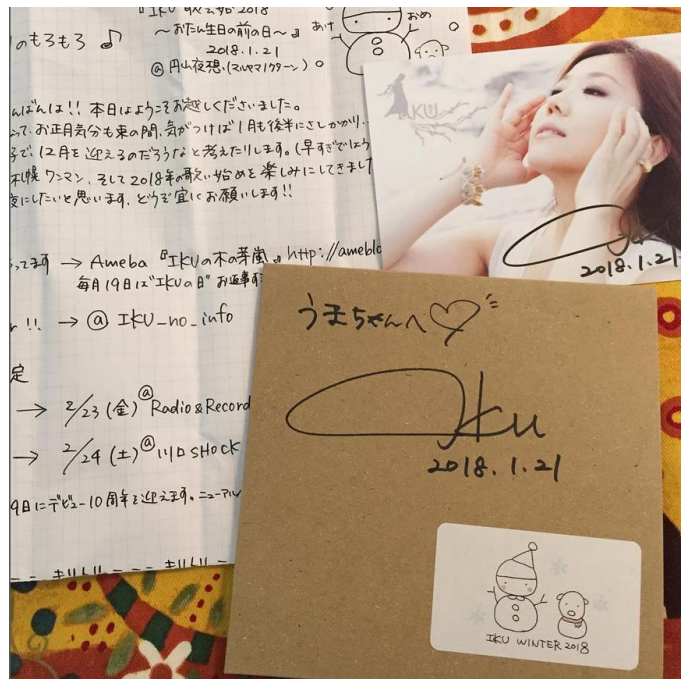 『IKU 歌い始め2018
～おたん生日の前の日～』
2018.1.21
@円山夜想(マルヤマノクターン)
あけ
おめ
のもろもろ ♪
んばんは!! 本日はようこそお越しくださいました。
って、お正月気分も束の間、気がつけば1月も後半にさしかかり、
子で、12月を迎えるのだろうなと考えたりします。(早すぎでしょう
札幌ワンマン、そして2018年の歌い始めを楽しみにしてきまし
夜にしたいと思います。どうぞ宜しくお願いします!!
ってます → Ameba 『IKUの木の芽嵐』 http://ameblo
毎月19日は"IKUの日"
!! → @ IKU_no_info
定
→ 2/23 (金) @ Radio & Record
→ 2/24 (土) @ 川口SHOCK
9日にデビュー10周年を迎えます。ニューアル
キリトリ キリトリ
IKU
IKU
2018.1.21
うまちゃんへ♡
IKU
2018.1.21
IKU WINTER 2018